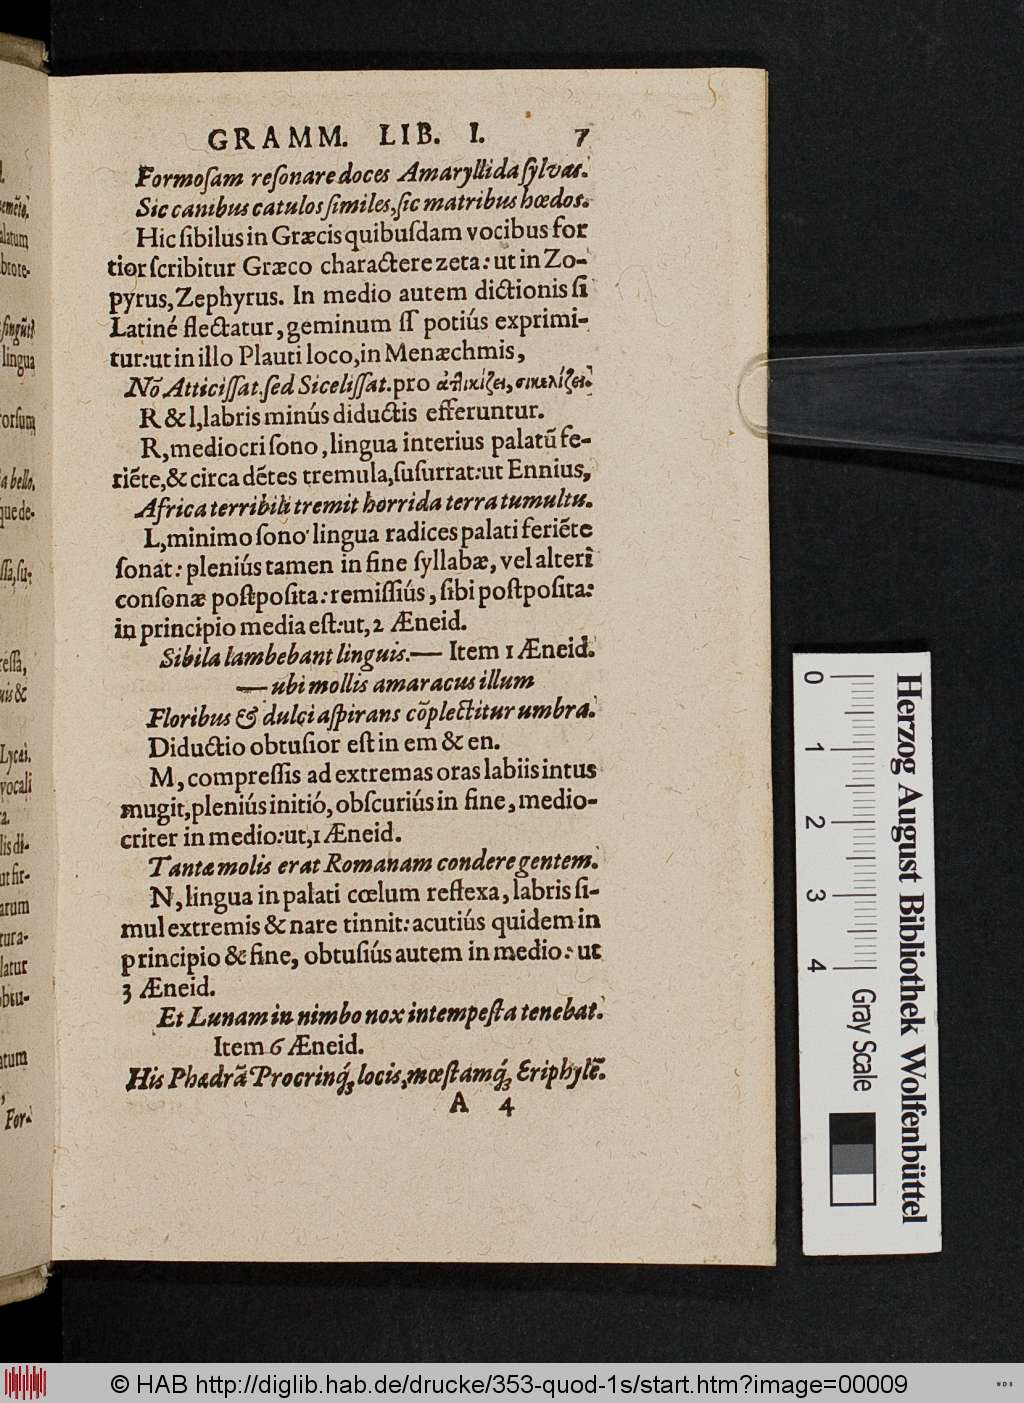 GRAMM. LIB. I. 7
Formoſam reſonare doces Amaryllida ſylvas.
Sic canibus catulos ſimiles, ſic matribus hœdos.
Hic ſibilus in Græcis quibuſdam vocibus for
tior ſcribitur Græco charactere zeta: ut in Zo-
pyrus, Zephyrus. In medio autem dictionis ſi
Latiné flectatur, geminum ſſ potiús exprimi-
tur: ut in illo Plauti loco, in Menæchmis,
Nõ Atticiſſat. ſed Siceliſſat. pro ἀτλικίζει, σικελίζει.
R & l, labris minús diductis efferuntur.
R, mediocri ſono, lingua interius palatũ fe-
riẽte, & circa dẽtes tremula, ſuſurrat: ut Ennius,
Africa terribili tremit horrida terra tumultu.
L, minimo ſono lingua radices palati feriẽte
ſonat: pleniús tamen in fine ſyllabæ, vel alteri
conſonæ poſtpoſita: remiſſiús, ſibi poſtpoſita:
in principio media eſt: ut, 2 Æneid.
Sibila lambebant linguis.— Item 1 Æneid.
— ubi mollis amaracus illum
Floribus & dulci aſpirans cõplectitur umbra.
Diductio obtuſior eſt in em & en.
M, compreſſis ad extremas oras labiis intus
mugit, pleniús initió, obſcuriús in fine, medio-
criter in medio: ut, 1 Æneid.
Tantæ molis erat Romanam condere gentem.
N, lingua in palati cœlum reflexa, labris ſi-
mul extremis & nare tinnit: acutiús quidem in
principio & fine, obtuſiús autem in medio: ut
3 Æneid.
Et Lunam in nimbo nox intempeſta tenebat.
Item 6 Æneid.
His Phædrã Procrinq́ꝫ locis, mœſtamq́ꝫ Eriphylẽ.
A 4
bello.
lingua
Lycæi.
vocali
For-
0 1 2 3 4
Gray Scale
Herzog August Bibliothek Wolfenbüttel
© HAB http://diglib.hab.de/drucke/353-quod-1s/start.htm?image=00009